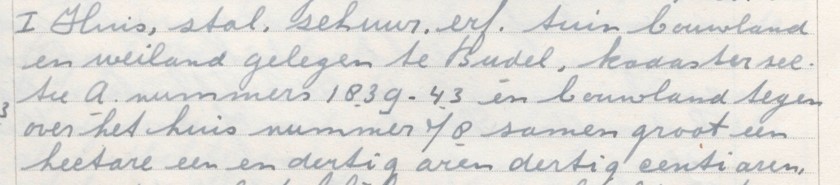 I Huis, stal, schuur, erf, tuin bouwland
en weiland gelegen te Budel, kadaster sec-
tie A. nummers 1839-43 en bouwland tegen
over het huis nummer 7/8 samen groot een
hectare een en dertig aren dertig centiaren,